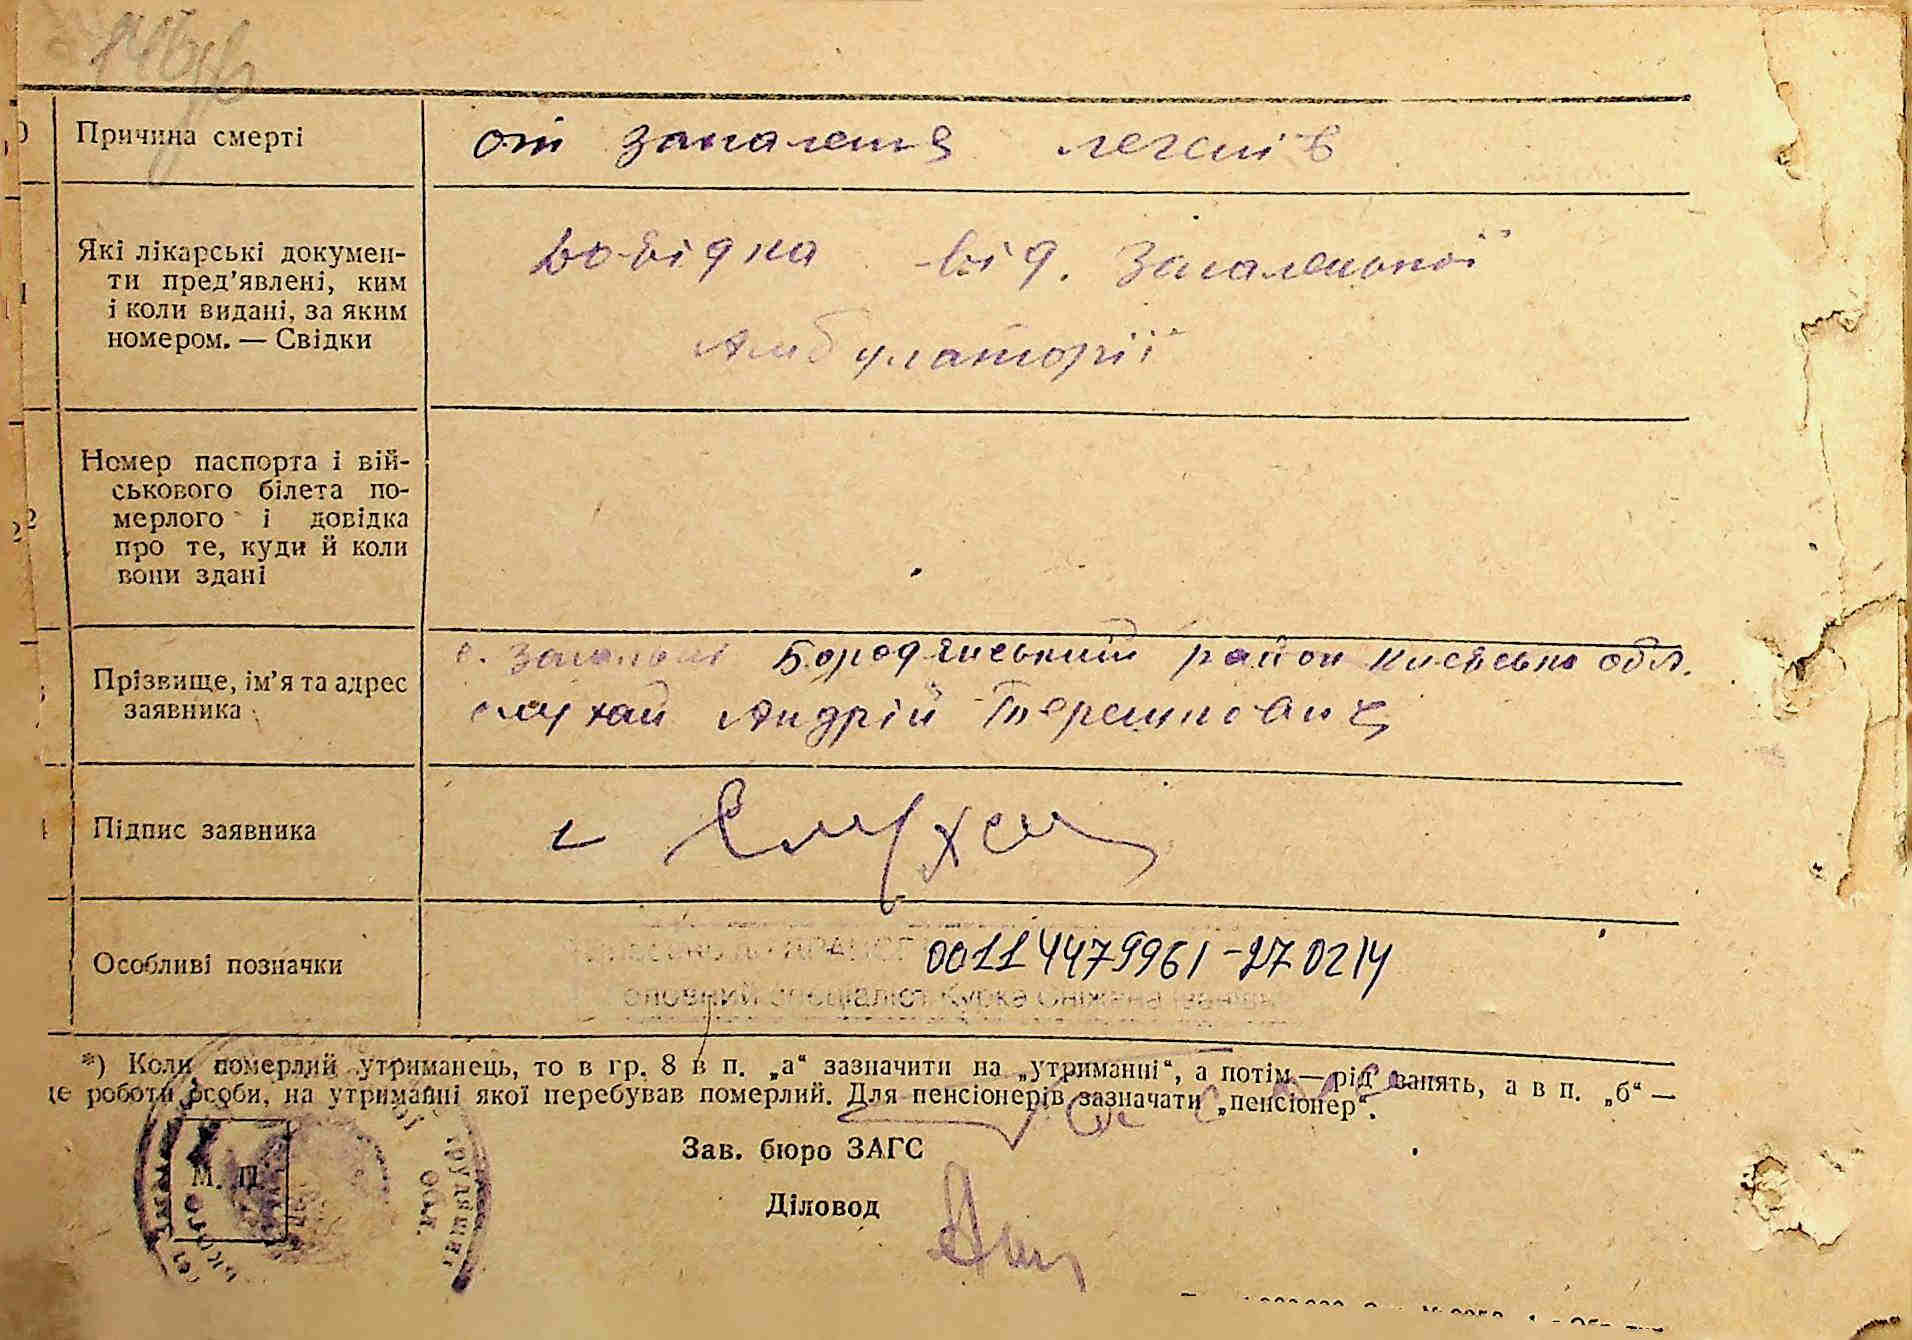 Причина смерті
от запалення легенів
Які лікарські докумен-
ти пред’явлені, ким
і коли видані, за яким
номером. — Свідки
довідка від. Загальської
Амбулаторії
Номер паспорта і вій-
ськового білета по-
мерлого і довідка
про те, куди й коли
вони здані
Прізвище, ім’я та адрес
заявника
с. Загальці Бородянський район Київська обл.
Андрій
Підпис заявника
Особливі позначки
00114479961-270214
оловний спеціаліст Курка Сніжана Іванівна
*) Коли померлий утриманець, то в гр. 8 в п. „а“ зазначити на „утриманні“, а потім — рід занять, а в п. „б“ —
це роботи особи, на утриманні якої перебував померлий. Для пенсіонерів зазначати „пенсіонер“.
Зав. бюро ЗАГС
М. П.
Діловод